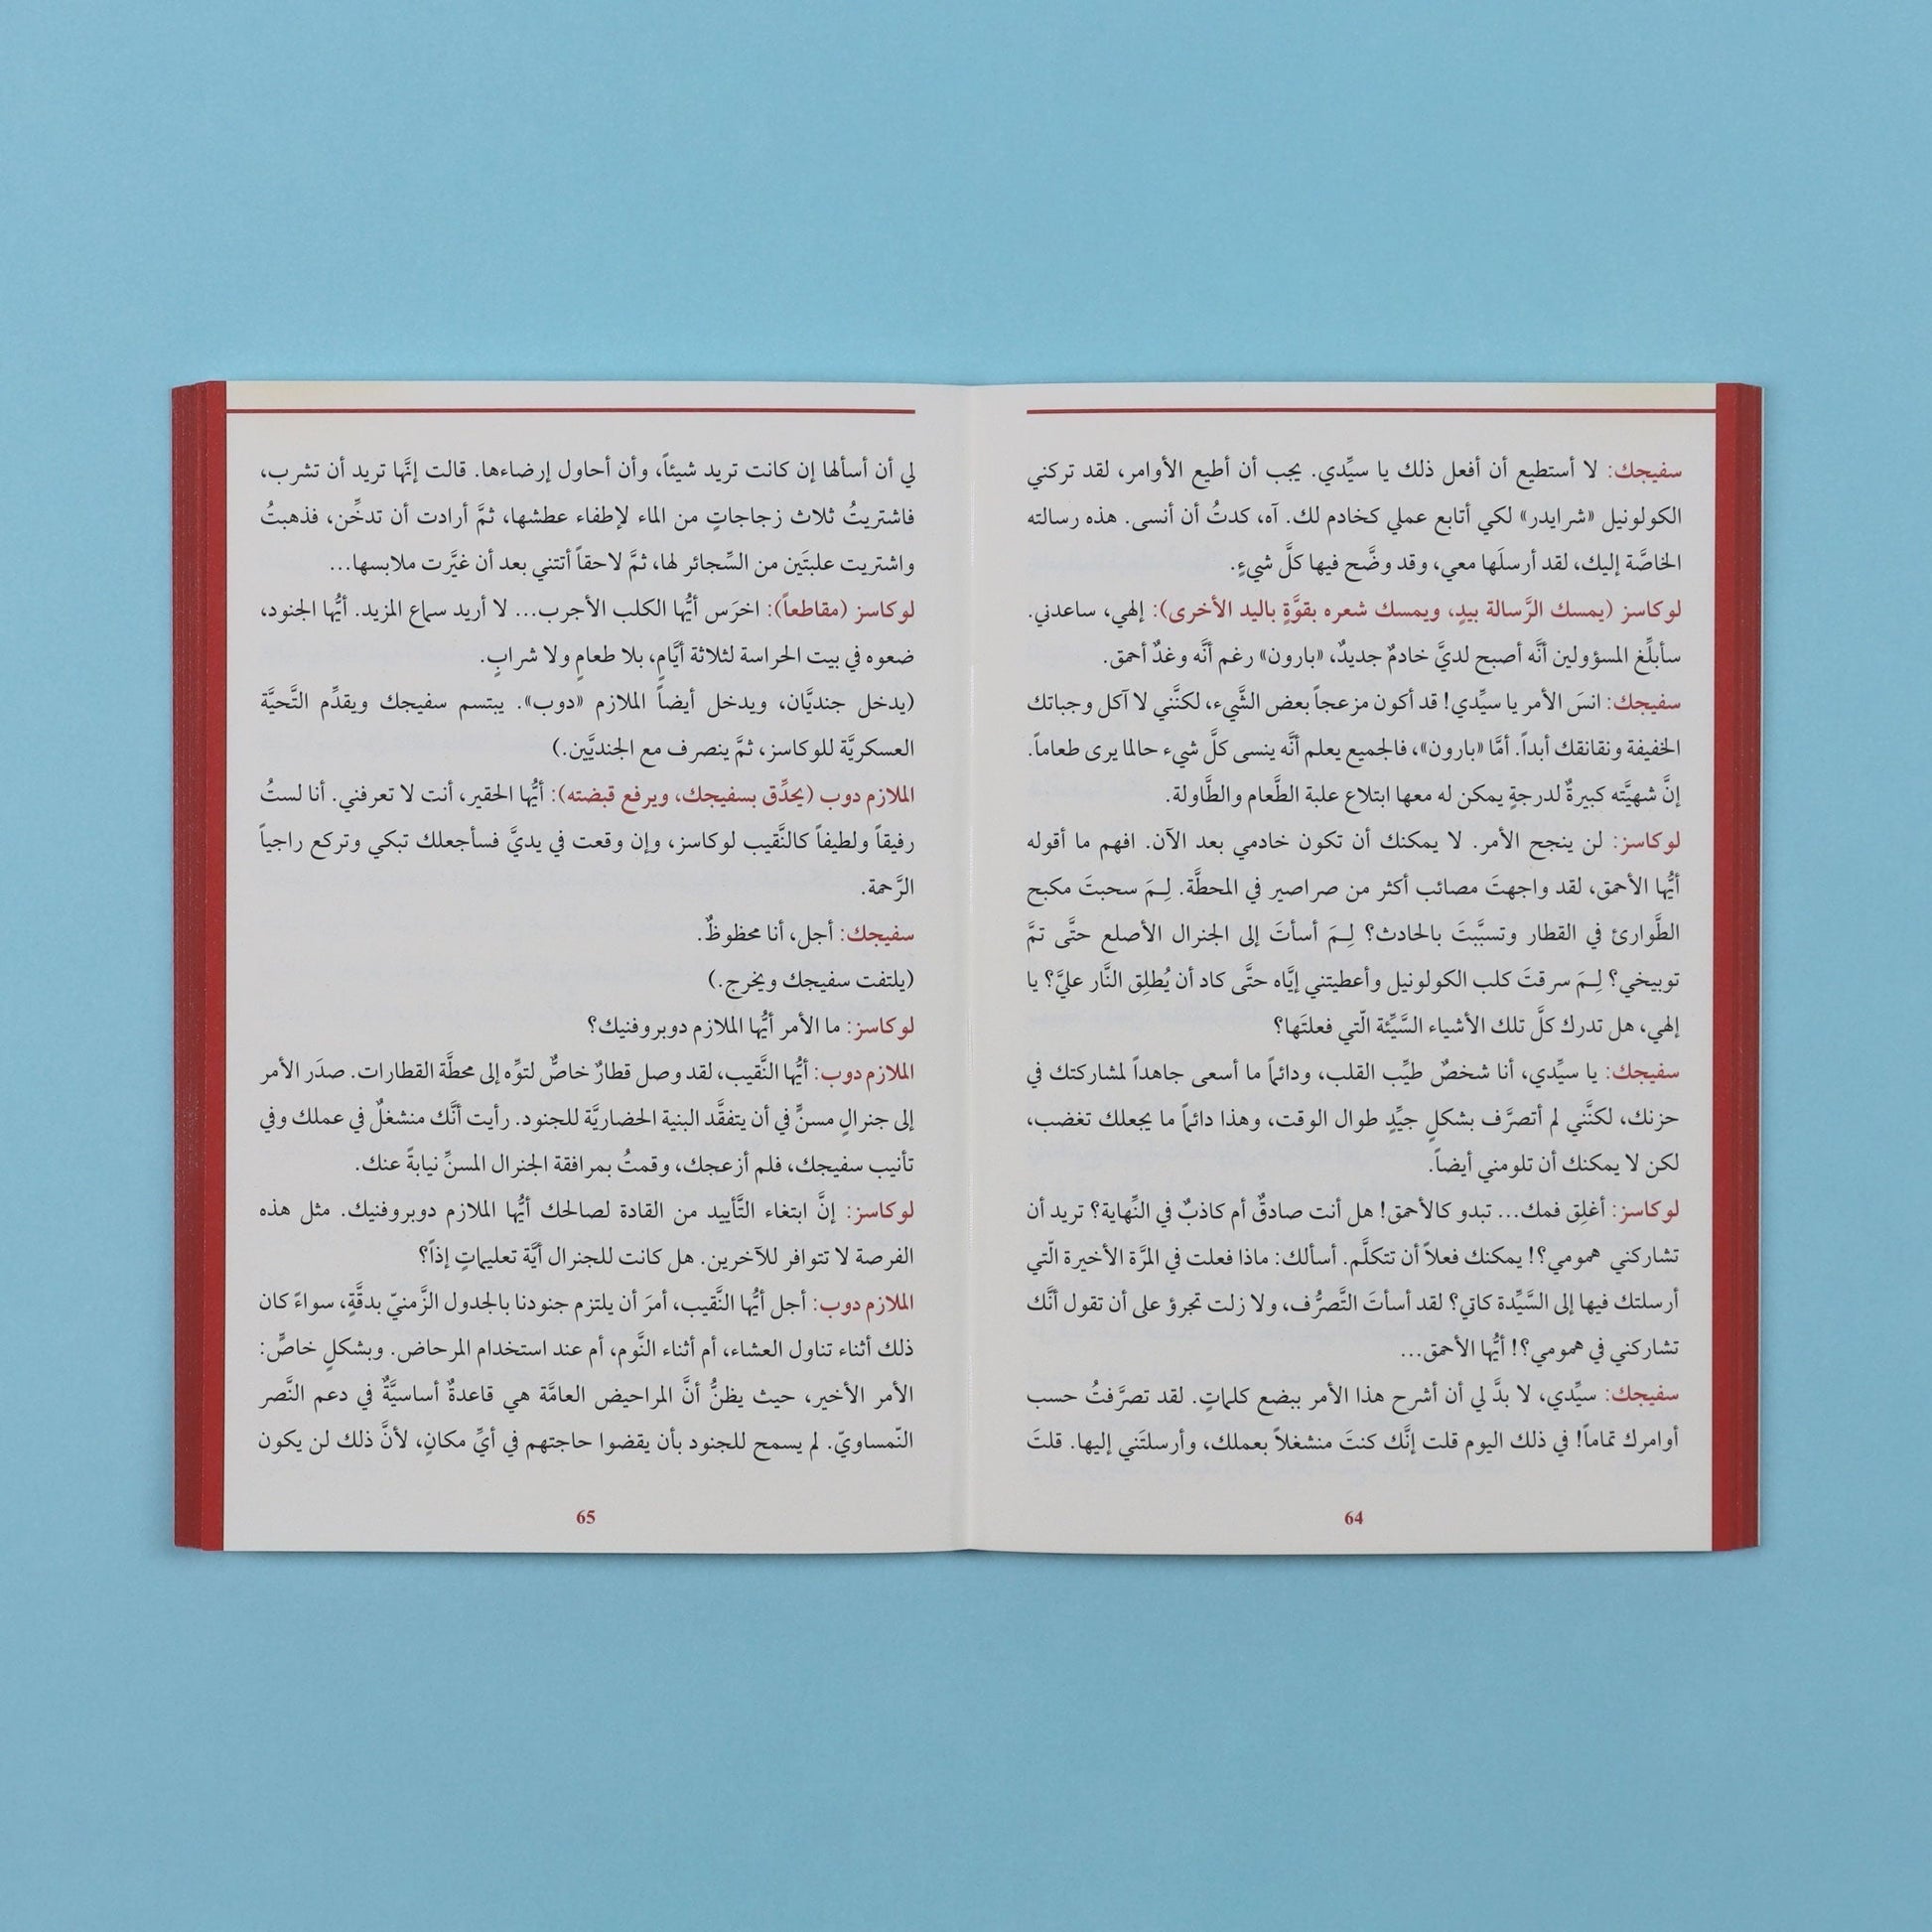 سفيجك: لا أستطيع أن أفعل ذلك يا سيِّدي. يجب أن أطيع الأوامر، لقد تركني
الكولونيل «شرايدر» لكي أتابع عملي كخادم لك. آه، كدتُ أن أنسى. هذه رسالته
الخاصَّة إليك، لقد أرسلَها معي، وقد وضَّح فيها كلَّ شيءٍ.
لوكاسز (يمسك الرَّسالة بيدٍ، ويمسك شعره بقوَّةٍ باليد الأخرى): إلهي، ساعدني.
سأبلِّغ المسؤولين أنَّه أصبح لديَّ خادمٌ جديدٌ، «بارون» رغم أنَّه وغدٌ أحمق.
سفيجك: انسَ الأمر يا سيِّدي! قد أكون مزعجاً بعض الشَّيء، لكنَّني لا آكل وجباتك
الخفيفة ونقانقك أبداً. أمَّا «بارون»، فالجميع يعلم أنَّه ينسى كلَّ شيء حالما يرى طعاماً.
إنَّ شهيَّته كبيرةٌ لدرجةٍ يمكن له معها ابتلاع علبة الطَّعام والطَّاولة.
لوكاسز: لن ينجح الأمر. لا يمكنك أن تكون خادمي بعد الآن. افهم ما أقوله
أيُّها الأحمق، لقد واجهتَ مصائب أكثر من صراصير في المحطَّة. لِـمَ سحبتَ مكبح
الطَّوارئ في القطار وتسبَّبتَ بالحادث؟ لِـمَ أسأتَ إلى الجنرال الأصلع حتَّى تمَّ
توبيخي؟ لِـمَ سرقتَ كلب الكولونيل وأعطيتني إيَّاه حتَّى كاد أن يُطلِق النَّار عليَّ؟ يا
إلهي، هل تدرك كلَّ تلك الأشياء السَّيِّئة الّتي فعلتَها؟
سفيجك: يا سيِّدي، أنا شخصٌ طيِّب القلب، ودائماً ما أسعى جاهداً لمشاركتك في
حزنك، لكنَّني لم أتصرَّف بشكلٍ جيِّدٍ طوال الوقت، وهذا دائماً ما يجعلك تغضب،
لكن لا يمكنك أن تلومني أيضاً.
لوكاسز: أغلِق فمك... تبدو كالأحمق! هل أنت صادقٌ أم كاذبٌ في النِّهاية؟ تريد أن
تشاركني همومي؟! يمكنك فعلاً أن تتكلَّم. أسألك: ماذا فعلت في المرَّة الأخيرة الّتي
أرسلتك فيها إلى السَّيِّدة كاتي؟ لقد أسأتَ التَّصرُّف، ولا زلت تجرؤ على أن تقول أنَّك
تشاركني في همومي؟! أيُّها الأحمق...
سفيجك: سيِّدي، لا بدَّ لي أن أشرح هذا الأمر ببضع كلماتٍ. لقد تصرَّفتُ حسب
أوامرك تماماً! في ذلك اليوم قلت إنَّك كنتَ منشغلاً بعملك، وأرسلتَني إليها. قلتَ
64
لي أن أسألها إن كانت تريد شيئاً، وأن أحاول إرضاءها. قالت إنَّها تريد أن تشرب،
فاشتريتُ ثلاث زجاجاتٍ من الماء لإطفاء عطشها، ثمَّ أرادت أن تدخِّن، فذهبتُ
واشتريت علبتَين من السِّجائر لها، ثمَّ لاحقاً أتتني بعد أن غيَّرت ملابسها...
لوكاسز (مقاطعاً): اخرَس أيُّها الكلب الأجرب... لا أريد سماع المزيد. أيُّها الجنود،
ضعوه في بيت الحراسة لثلاثة أيَّامٍ، بلا طعامٍ ولا شرابٍ.
(يدخل جنديَّان، ويدخل أيضاً الملازم «دوب». يبتسم سفيجك ويقدِّم التَّحيَّة
العسكريَّة للوكاسز، ثمَّ ينصرف مع الجنديَّين.)
الملازم دوب (يحدِّق بسفيجك، ويرفع قبضته): أيُّها الحقير، أنت لا تعرفني. أنا لستُ
رفيقاً ولطيفاً كالنَّقيب لوكاسز، وإن وقعت في يديَّ فسأجعلك تبكي وتركع راجياً
الرَّحمة.
سفيجك: أجل، أنا محظوظٌ.
(يلتفت سفيجك ويخرج.)
لوكاسز: ما الأمر أيُّها الملازم دوبروفنيك؟
الملازم دوب: أيُّها النَّقيب، لقد وصل قطارٌ خاصٌّ لتوِّه إلى محطَّة القطارات. صدَر الأمر
إلى جنرالٍ مسنٍّ في أن يتفقَّد البنية الحضاريَّة للجنود. رأيت أنَّك منشغلٌ في عملك وفي
تأنيب سفيجك، فلم أزعجك، وقمتُ بمرافقة الجنرال المسنِّ نيابةً عنك.
لوكاسز: إنَّ ابتغاء التَّأييد من القادة لصالحك أيُّها الملازم دوبروفنيك. مثل هذه
الفرصة لا تتوافر للآخرين. هل كانت للجنرال أيَّة تعليماتٍ إذاً؟
الملازم دوب: أجل أيُّها النَّقيب، أمرَ أن يلتزم جنودنا بالجدول الزَّمنيّ بدقَّةٍ، سواءً كان
ذلك أثناء تناول العشاء، أم أثناء النَّوم، أم عند استخدام المرحاض. وبشكلٍ خاصٍّ:
الأمر الأخير، حيث يظنُّ أنَّ المراحيض العامَّة هي قاعدةٌ أساسيَّةٌ في دعم النَّصر
النّمساويّ. لم يسمح للجنود بأن يقضوا حاجتهم في أيِّ مكانٍ، لأنَّ ذلك لن يكون
65